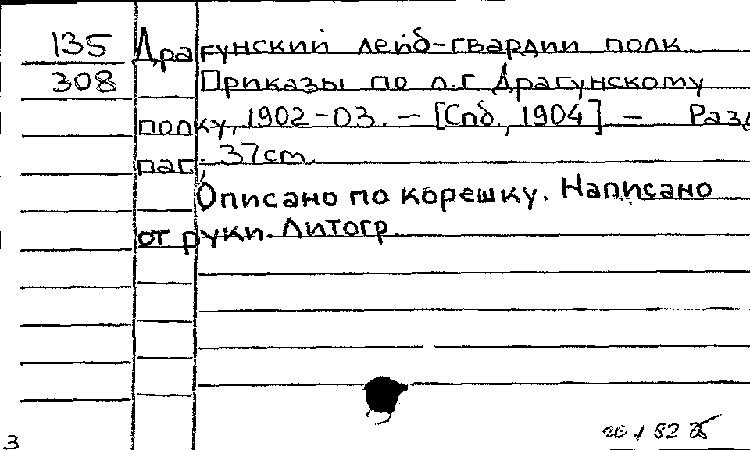 135 Драгунский лейб-гвардии полк
308 Приказы по л.г Драгунскому
полку, 1902-03. - [Спб., 1904] - Разд
паг; 37cm.
Описано по корешку. Написано
от руки. Литогр.
3